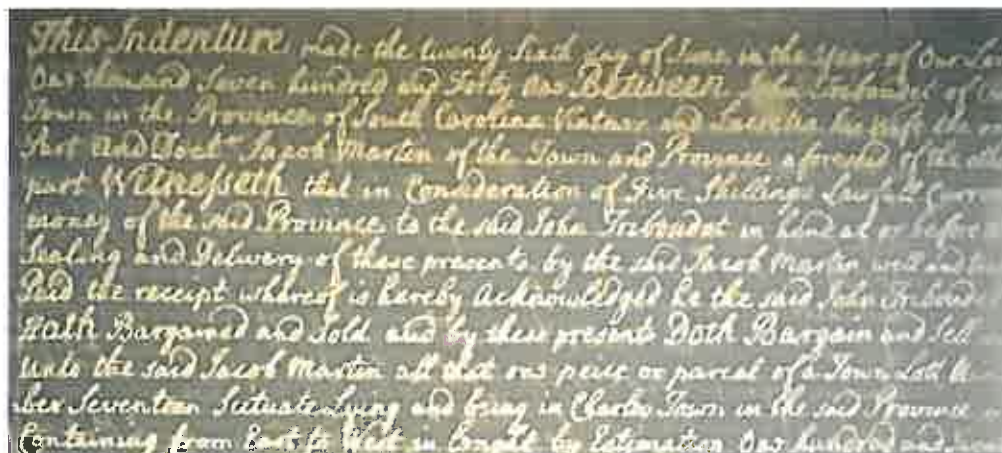 This Indenture made the twenty Sixth day of June in the Year of Our
One thousand Seven hundred and Forty one Between John Triboudet of
Town in the Province of South Carolina Vintner and Lucretia his wife the one
Part And Doct Jacob Martin of the Town and Province aforesaid of the
part Witnesseth that in Consideration of Five Shillings Lawfull
money of the said Province to the said John Triboudet in hand at or before
Sealing and Delivery of these presents by the said Jacob Martin well and
Paid the receipt whereof is hereby Acknowledged he the said John
Hath Bargained and Sold and by these presents Doth Bargain and Sell
Unto the said Jacob Martin all that one peice or parcel of a Town Lott
ber Seventeen Scituate Lying and being in Charles Town in the said Province
Containing from East to West in Lenght by Estimation One hundred and